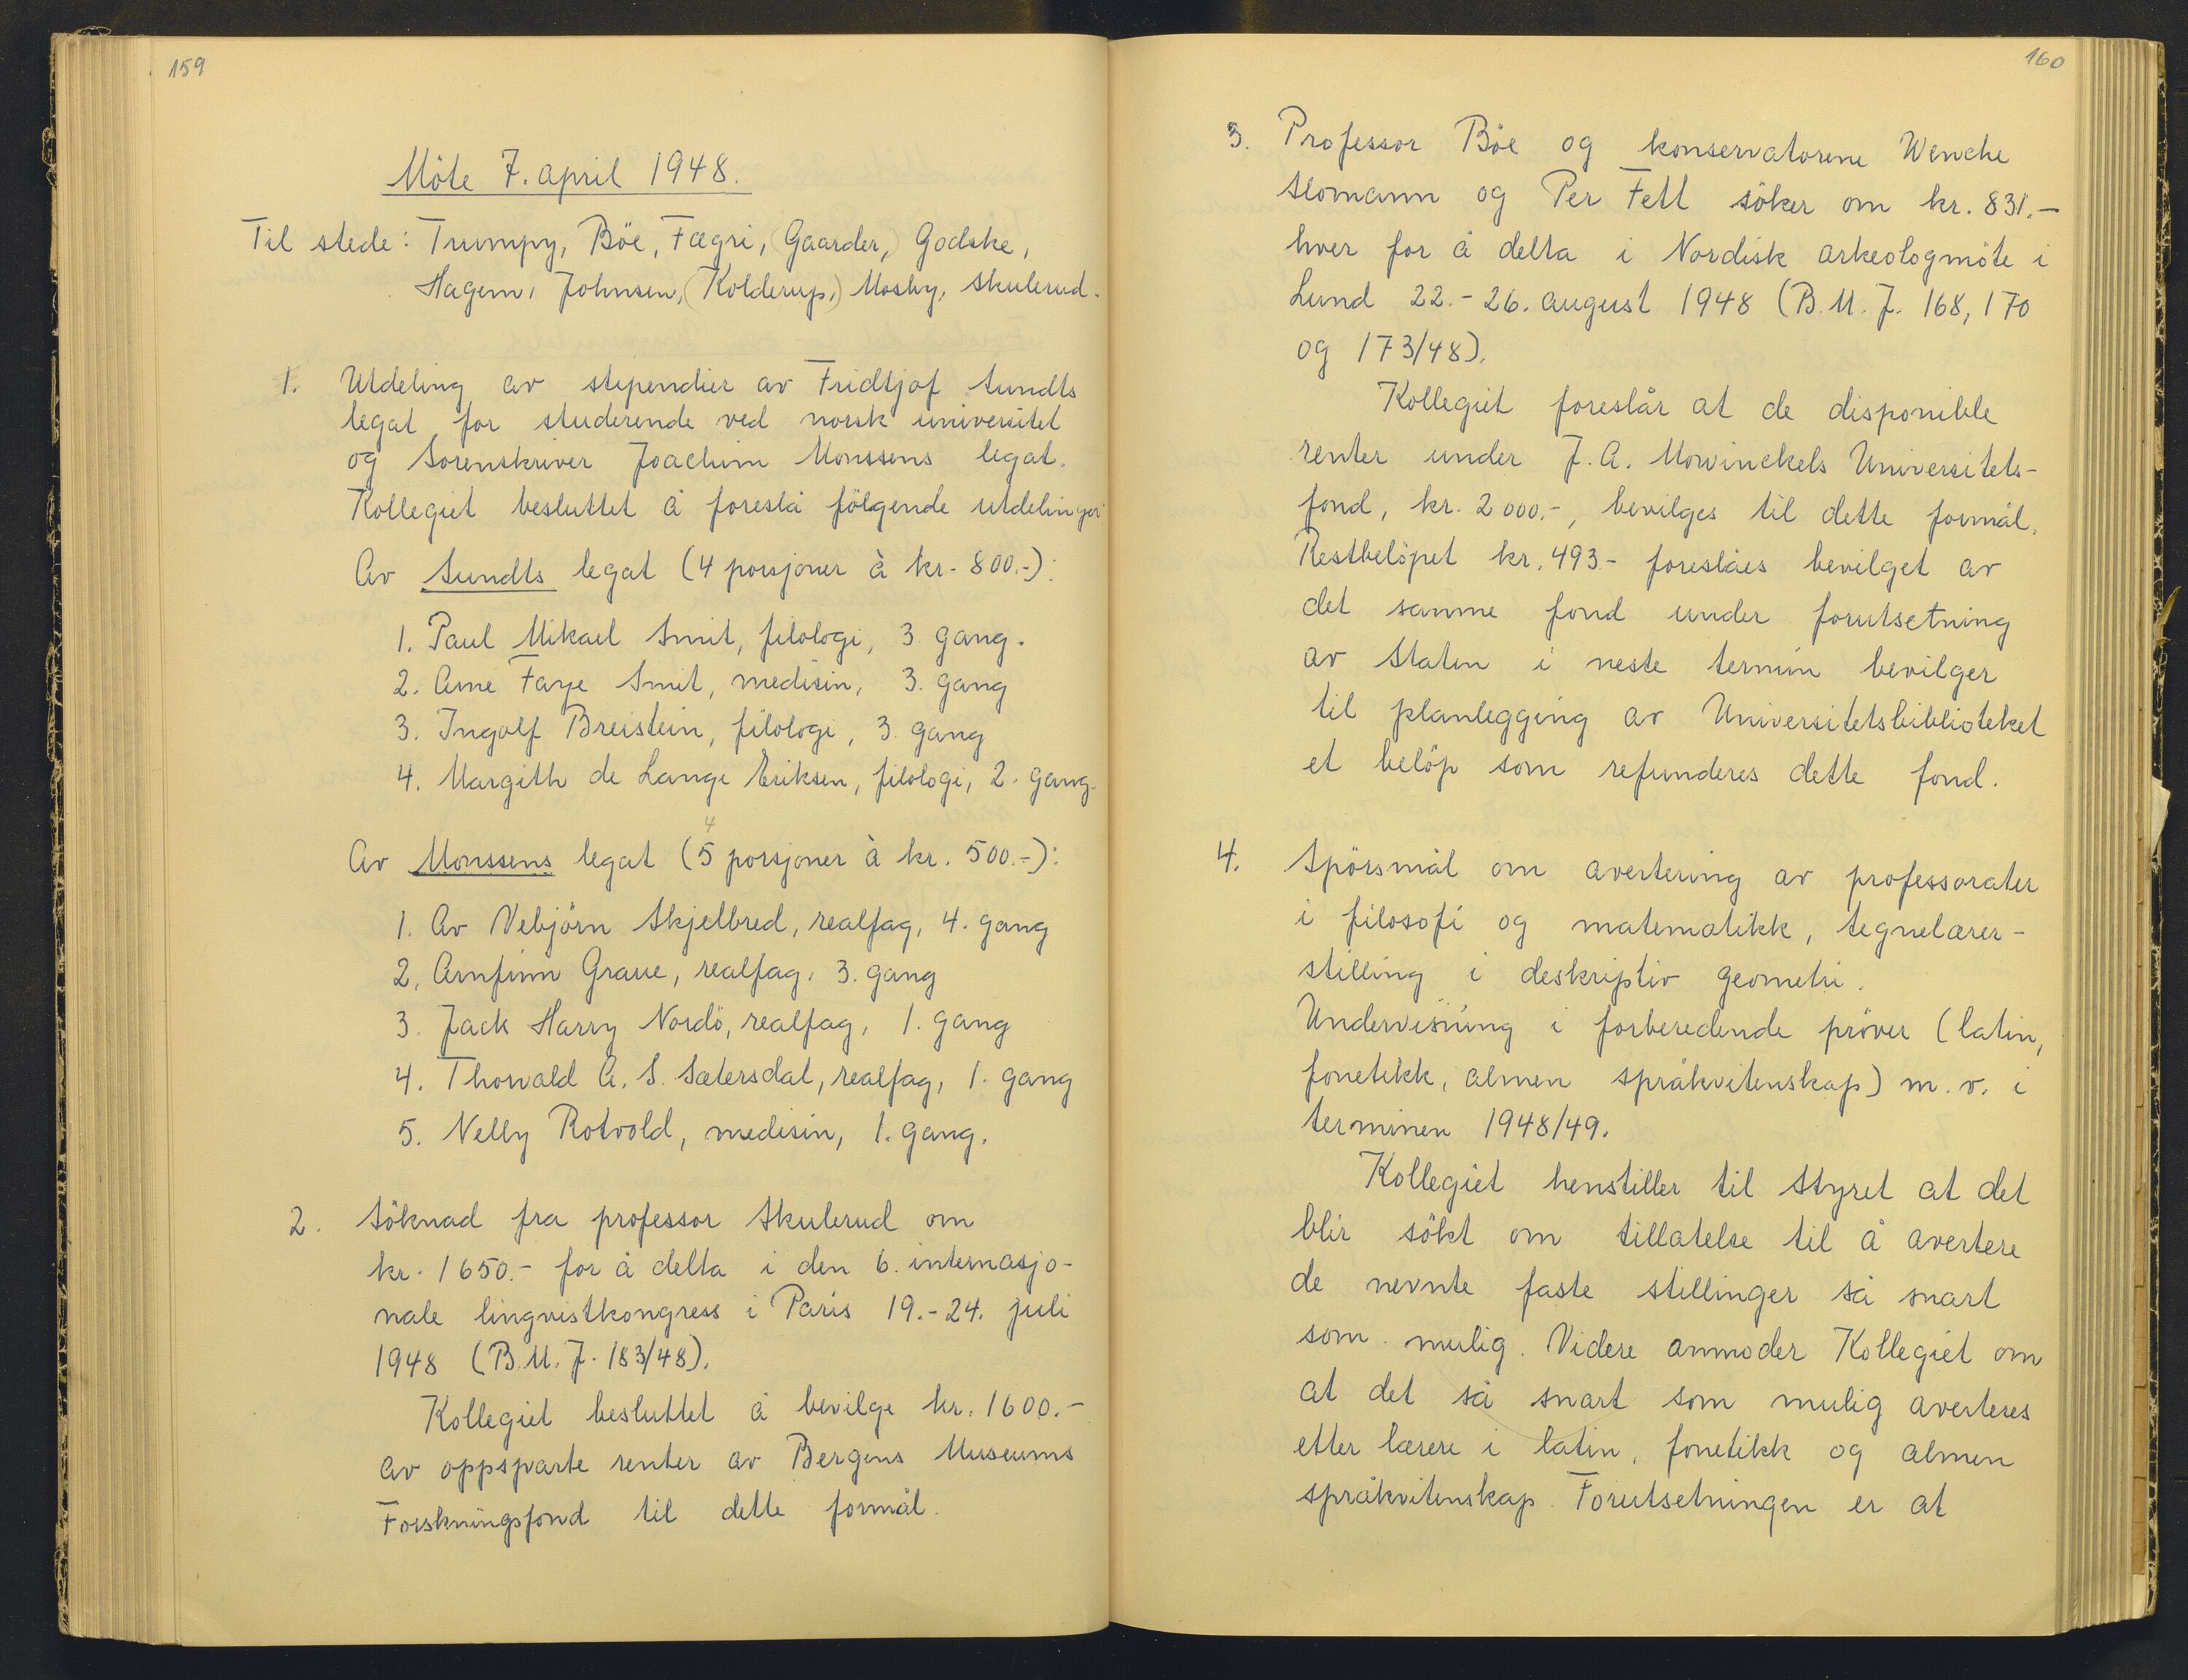 159
Möte 7. april 1948.
Til stede: Trumpy, Böe, Fægri, (Gaarder,) Godske,
Hagem, Johnsen, (Kolderup,) Mosby, Skulerud.
1. Utdeling av stipendier av Fridtjof Sundts
legat for studerende ved norsk universitet
og Sorenskriver Joachim Monssens legat.
Kollegiet besluttet å foreslå fölgende utdelinger
Av Sundts legat (4 porsjoner à kr. 800.-):
1. Paul Mikael Smit, filologi, 3. gang.
2. Arne Faye Smit, medisin, 3. gang
3. Ingolf Breistein, filologi, 3. gang
4. Margith de Lange Eriksen, filologi, 2. gang.
4
Av Monssens legat (5 porsjoner à kr. 500.-):
1. Av Vebjörn Skjelbred, realfag, 4. gang
2, Arnfinn Graue, realfag, 3. gang
3. Jack Harry Nordö, realfag, 1. gang
4. Thorvald A. S. Sætersdal, realfag, 1. gang
5. Nelly Rotvold, medisin, 1. gang.
2. Söknad fra professor Skulerud om
kr. 1650.- for å delta i den 6. internasjo-
nale lingvistkongress i Paris 19.-24. juli
1948 (B.M.J. 183/48).
Kollegiet besluttet å bevilge kr. 1600.-
av oppsparte renter av Bergens Museums
Forskningsfond til dette formål.
160
3. Professor Böe og konservatorene Wenche
Slomann og Per Fett söker om kr. 831.-
hver for å delta i Nordisk arkeologmöte i
Lund 22.-26. august 1948 (B.M.J. 168, 170
og 173/48).
Kollegiet foreslår at de disponible
renter under J. A. Mowinckels Universitets-
fond, kr. 2000.-, bevilges til dette formål.
Restbelöpet kr. 493.- foreslåes bevilget av
det samme fond under forutsetning
av Staten i neste termin bevilger
til planlegging av Universitetsbiblioteket
et belöp som refunderes dette fond.
4. Spörsmål om avertering av professorater
i filosofi og matematikk, tegnelærer-
stilling i deskriptiv geometri.
Undervisning i forberedende pröver (latin,
fonetikk, almen språkvitenskap) m. v. i
terminen 1948/49.
Kollegiet henstiller til Styret at det
blir sökt om tillatelse til å avertere
de nevnte faste stillinger så snart
som mulig. Videre anmoder Kollegiet om
at det så snart som mulig averteres
etter lærere i latin, fonetikk og almen
språkvitenskap. Forutsetningen er at